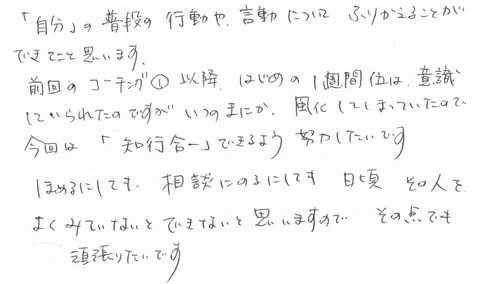 「自分」の普段の行動や、言動について ふりかえることが
できてこと思います。
前回のコーチング① 以降、はじめの1週間位は、意識
していられたのですが いつのまにか、風化してしまっていたので
今回は 「知行合一」できるよう 努力したいです
ほめるにしても、相談にのるにしても 日頃 その人を
よくみていないとできないと思いますので その点でも
頑張りたいです